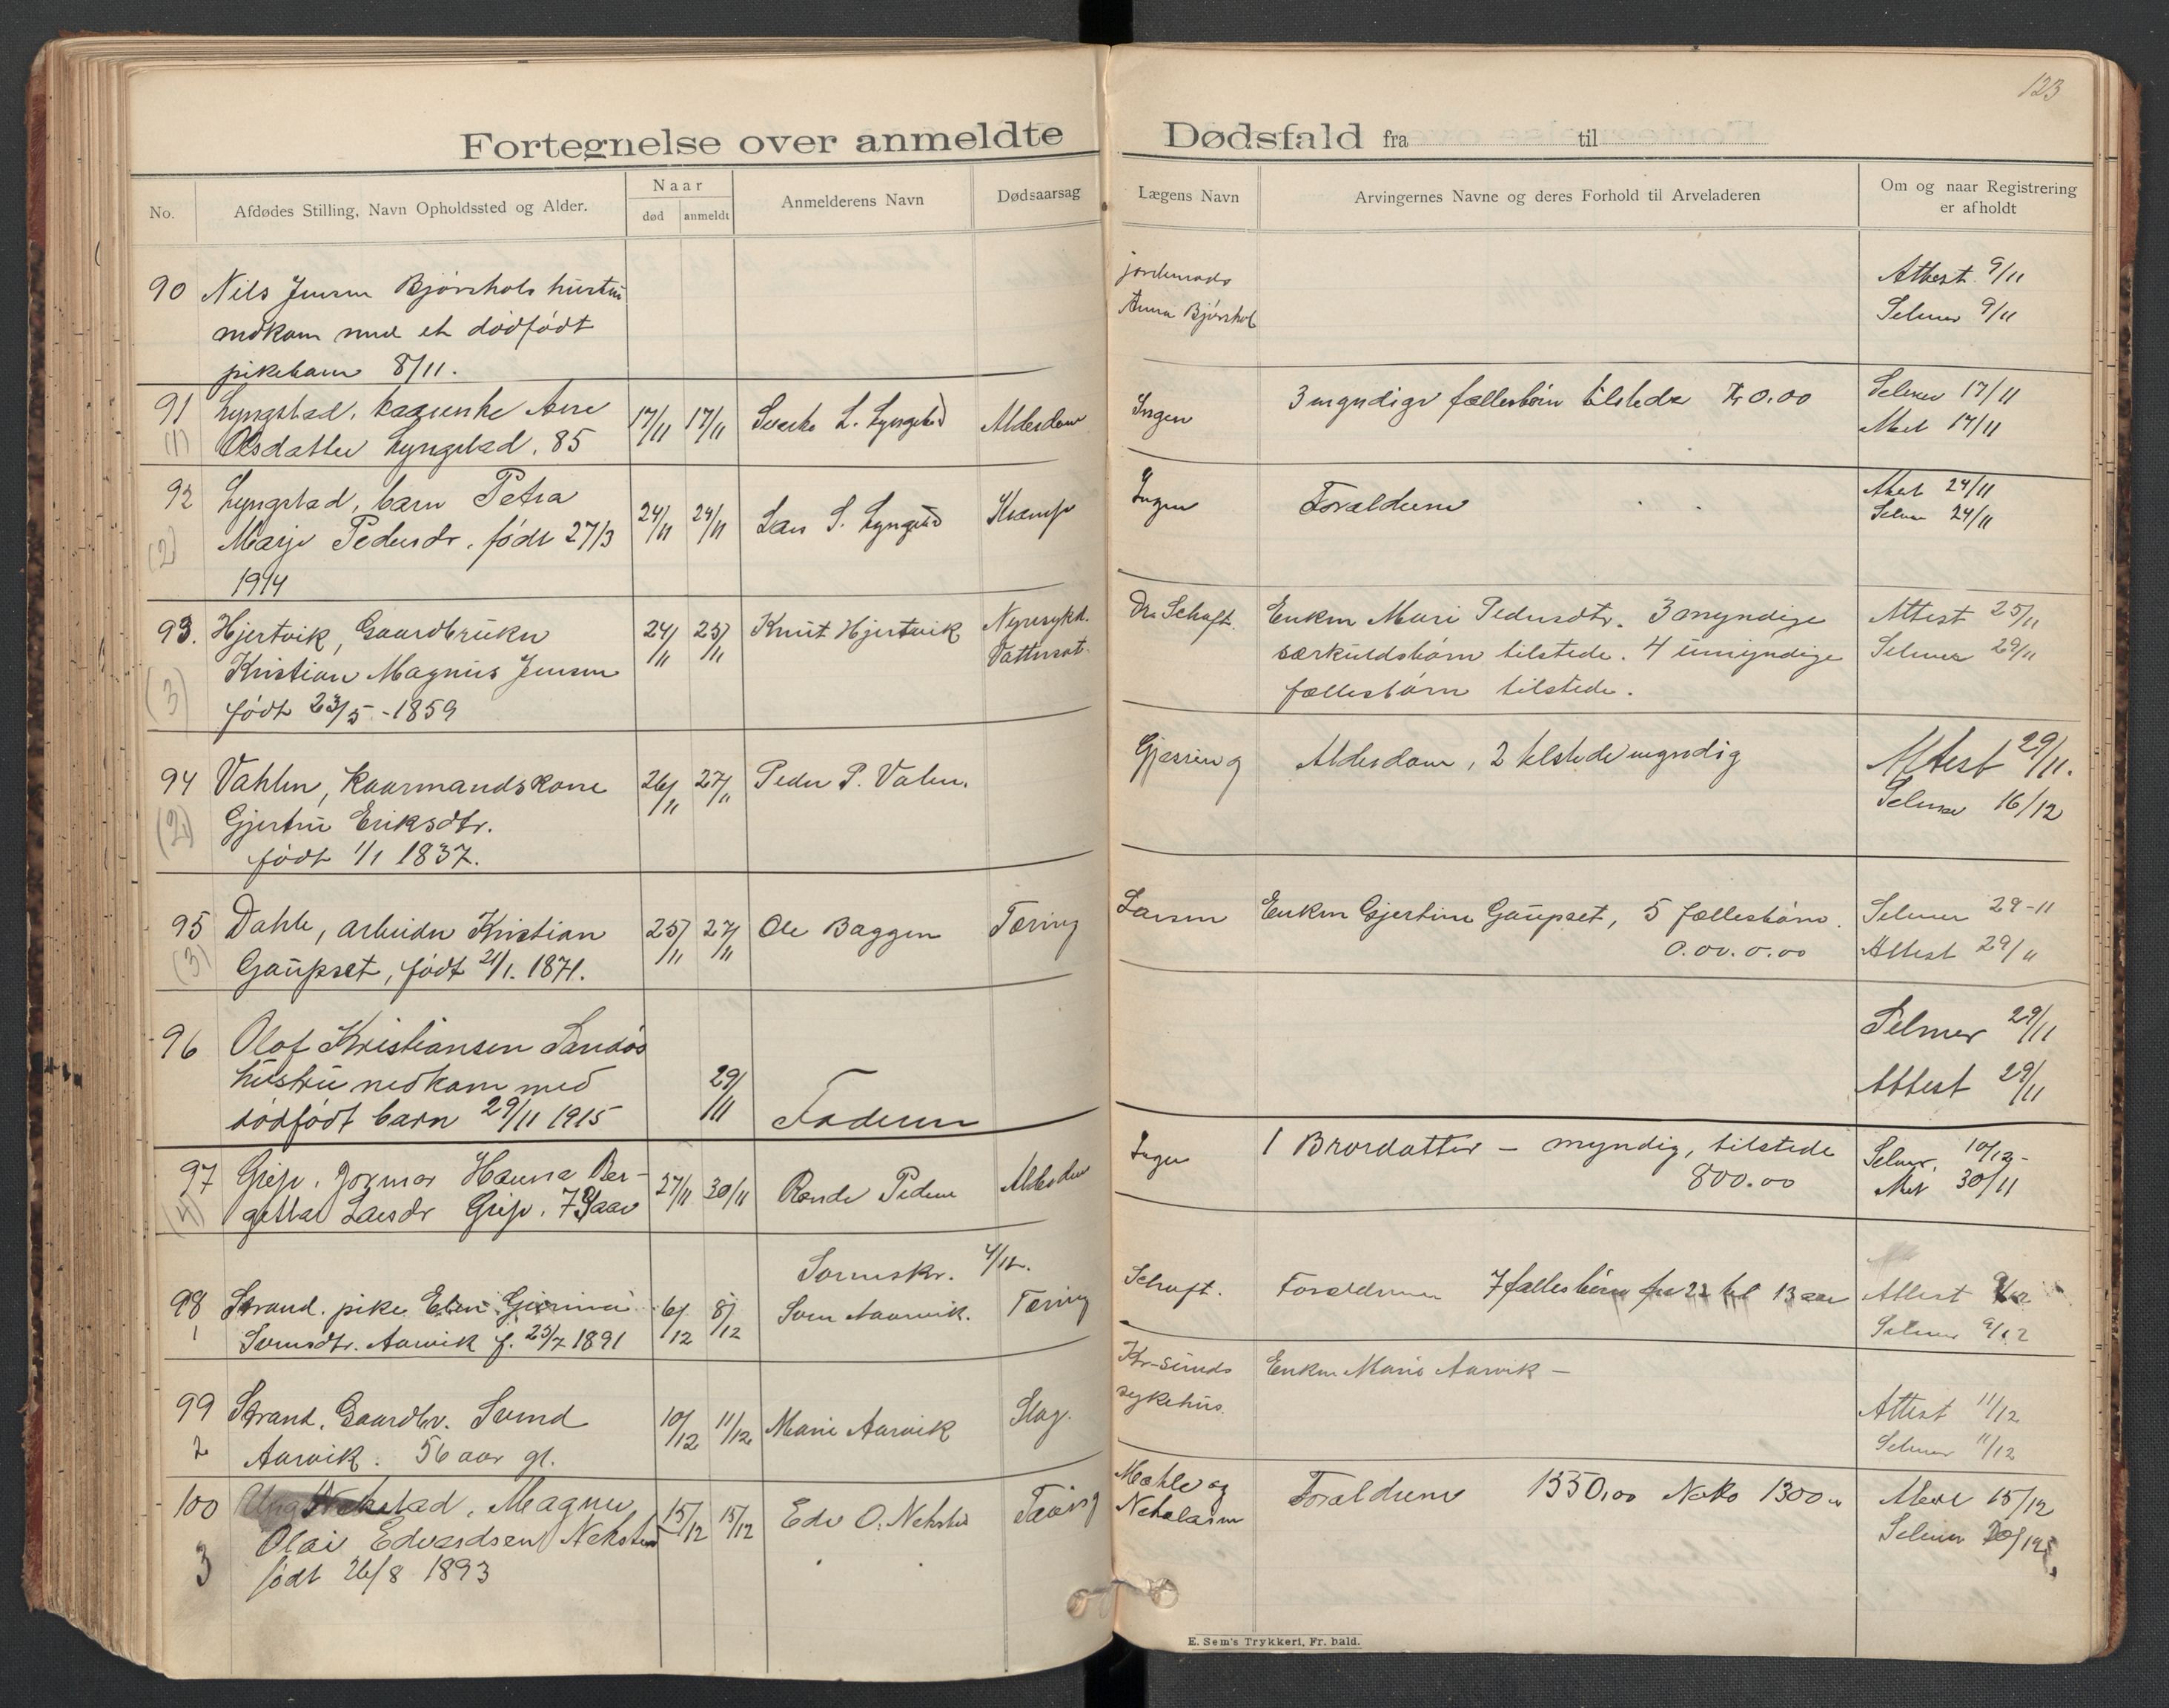 123
Fortegnelse over anmeldte Dødsfald fra til
No.
Afdødes Stilling, Navn Opholdssted og Alder.
Naar
død
anmeldt
Anmelderens Navn
Dødsaarsag
Lægens Navn
Arvingernes Navne og deres Forhold til Arveladeren
Om og naar Registrering
er afholdt
90 Nils Jensen Bjørshols hustru
nedkom med et dødfødt
pikebarn 8/11.
jordmoder
Anna Bjørshol
Attest 9/11
Selmer 9/11
91 Lyngstad, kaarenke Ane
(1) Olsdatter Lyngstad. 85
17/11 17/11
Sverke L. Lyngstad
Alderdom
Ingen
3 myndige fællesbørn tilstede Kr 0.00
Selmer 17/11
Attest 17/11
92 Lyngstad, barn Petra
(2) Marje Pedersdr. født 27/3
1914
24/11 24/11
Lars S. Lyngstad
Krampe
Ingen
Forældrene
Attest 24/11
Selmer 24/11
93. Hjertvik, Gaardbruker
(3) Kristian Magnus Jensen
født 23/5 - 1859
24/11 25/11
Knut Hjertvik
Nyresykd.
Vattersot.
Dr. Schaft.
Enken Mari Pedersdtr. 3 myndige
særkuldsbørn tilstede. 4 umyndige
fællesbørn tilstede.
Attest 25/11
Selmer 29/11
94 Vahlen, Kaarmandskone
(2) Gjertru Eriksdtr.
født 1/1 1837.
26/11 27/11
Peder P. Valen.
Gjessing
Alderdom, 2 tilstede myndig
Attest 29/11.
Selmer 16/12
95 Dahle, arbeider Kristian
(3) Gaupset, født 21/1. 1871.
25/11 27/11
Ole Baggen
Tæring
Larsen
Enken Gjertine Gaupset, 5 fællesbørn.
0.00.0.00
Selmer 29-11
Attest 29/11
96 Olof Kristiansen Sandøs
hustru nedkom med
dødfødt barn 29/11 1915
29/11
Faderen
Selmer 29/11
Attest 29/11
97 Grip. Jormor Hanna Ber-
(4) gitta Larsdr Grip. 79 aar
27/11 30/11
Rende Pedere
Alderdom
Ingen
1 Brordatter - myndig, tilstede
800.00
Selmer. 10/12-
Attest 30/11
Sorenskr. 4/12.
98 Strand. pike Elen
1 Svensdtr. Aarvik f. 25/7 1891
6/12 8/12
Sven Aarvik.
Tæring
Schaft.
Forældrene 7 fællesbørn fra 22 til 13 aar
Attest 9/12
Selmer 9/12
99 Strand. Gaardbr. Svend
2 Aarvik. 56 aar gl.
10/12 11/12
Marie Aarvik
Slag.
Kr-sunds
sykehus.
Enken Marie Aarvik -
Attest 11/12
Selmer 11/12
100 Nekstad, Magnus
3 Olai Edvardsen Nekstad
født 26/8 1893
15/12 15/12
Edv O. Nekstad
Tæring
Mæhle og
Forældrene 1550,00 Netto 1300
Attest 15/12
Selmer 20/12
E. Sem's Trykkeri, Fr. hald.